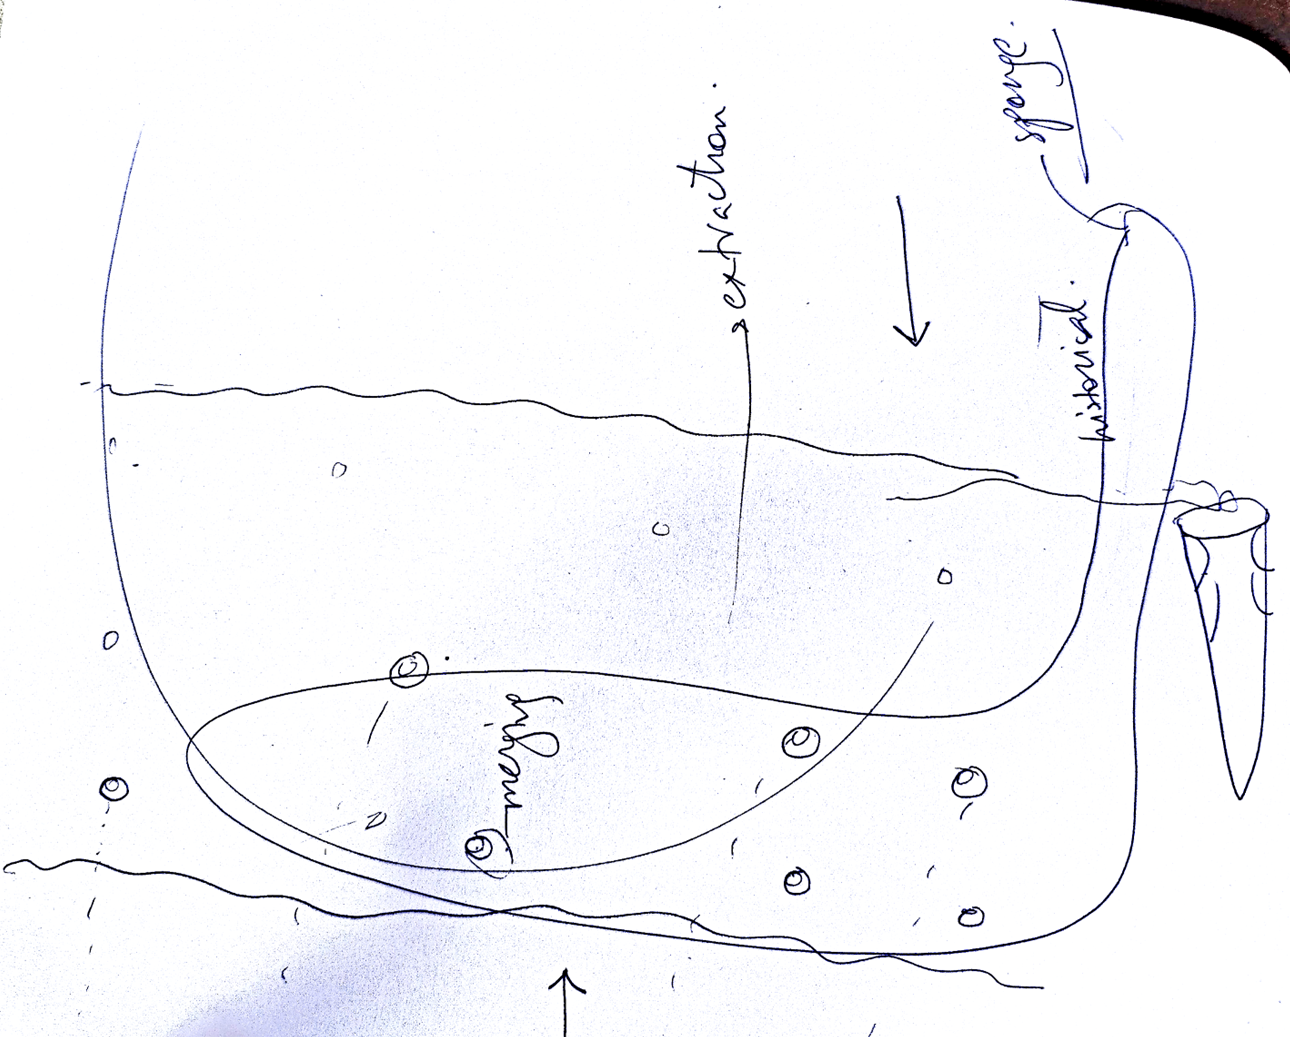 sponge.
extraction.
historical.
margin